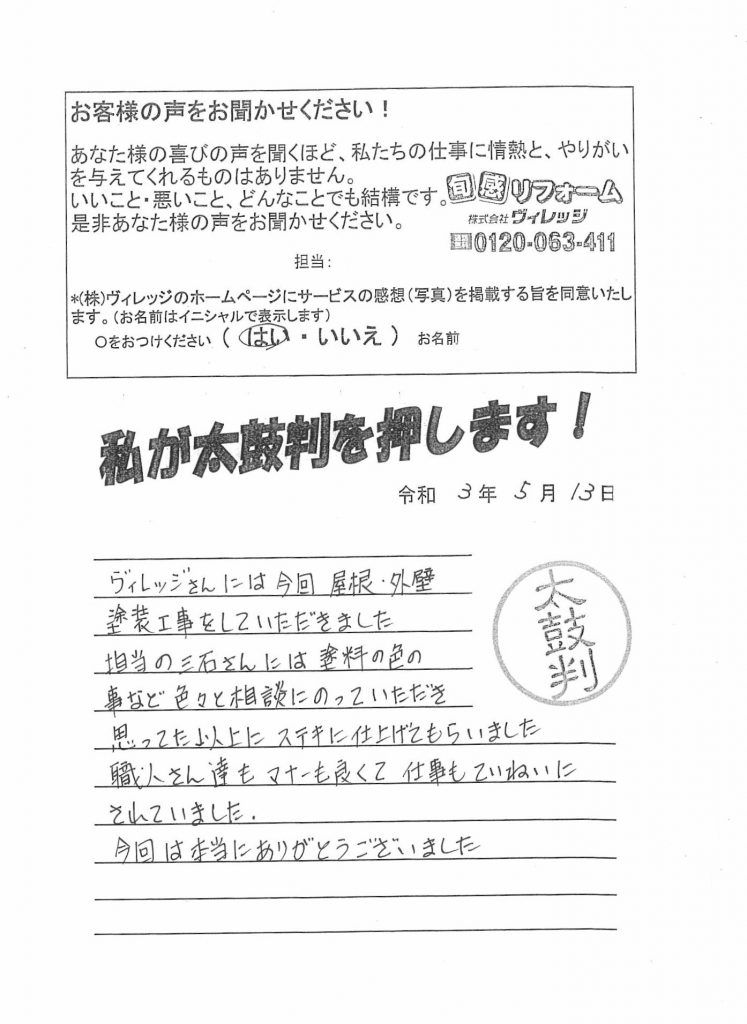 お客様の声をお聞かせください！
あなた様の喜びの声を聞くほど、私たちの仕事に情熱と、やりがい
を与えてくれるものはありません。
いいこと・悪いこと、どんなことでも結構です。
是非あなた様の声をお聞かせください。
旬感リフォーム
株式会社ヴィレッジ
0120-063-411
担当：
*(株)ヴィレッジのホームページにサービスの感想(写真)を掲載する旨を同意いたし
ます。(お名前はイニシャルで表示します)
○をおつけください ( はい ・ いいえ ) お名前
私が太鼓判を押します！
令和 3年 5月 13日
ヴィレッジさんには今回 屋根・外壁
塗装工事をしていただきました
担当の三石さんには 塗料の色の
事など色々と相談にのっていただき
思ってた以上に ステキに仕上げてもらいました
職人さん達も マナーも良くて 仕事もていねいに
されていました.
今回は本当にありがとうございました
太鼓判